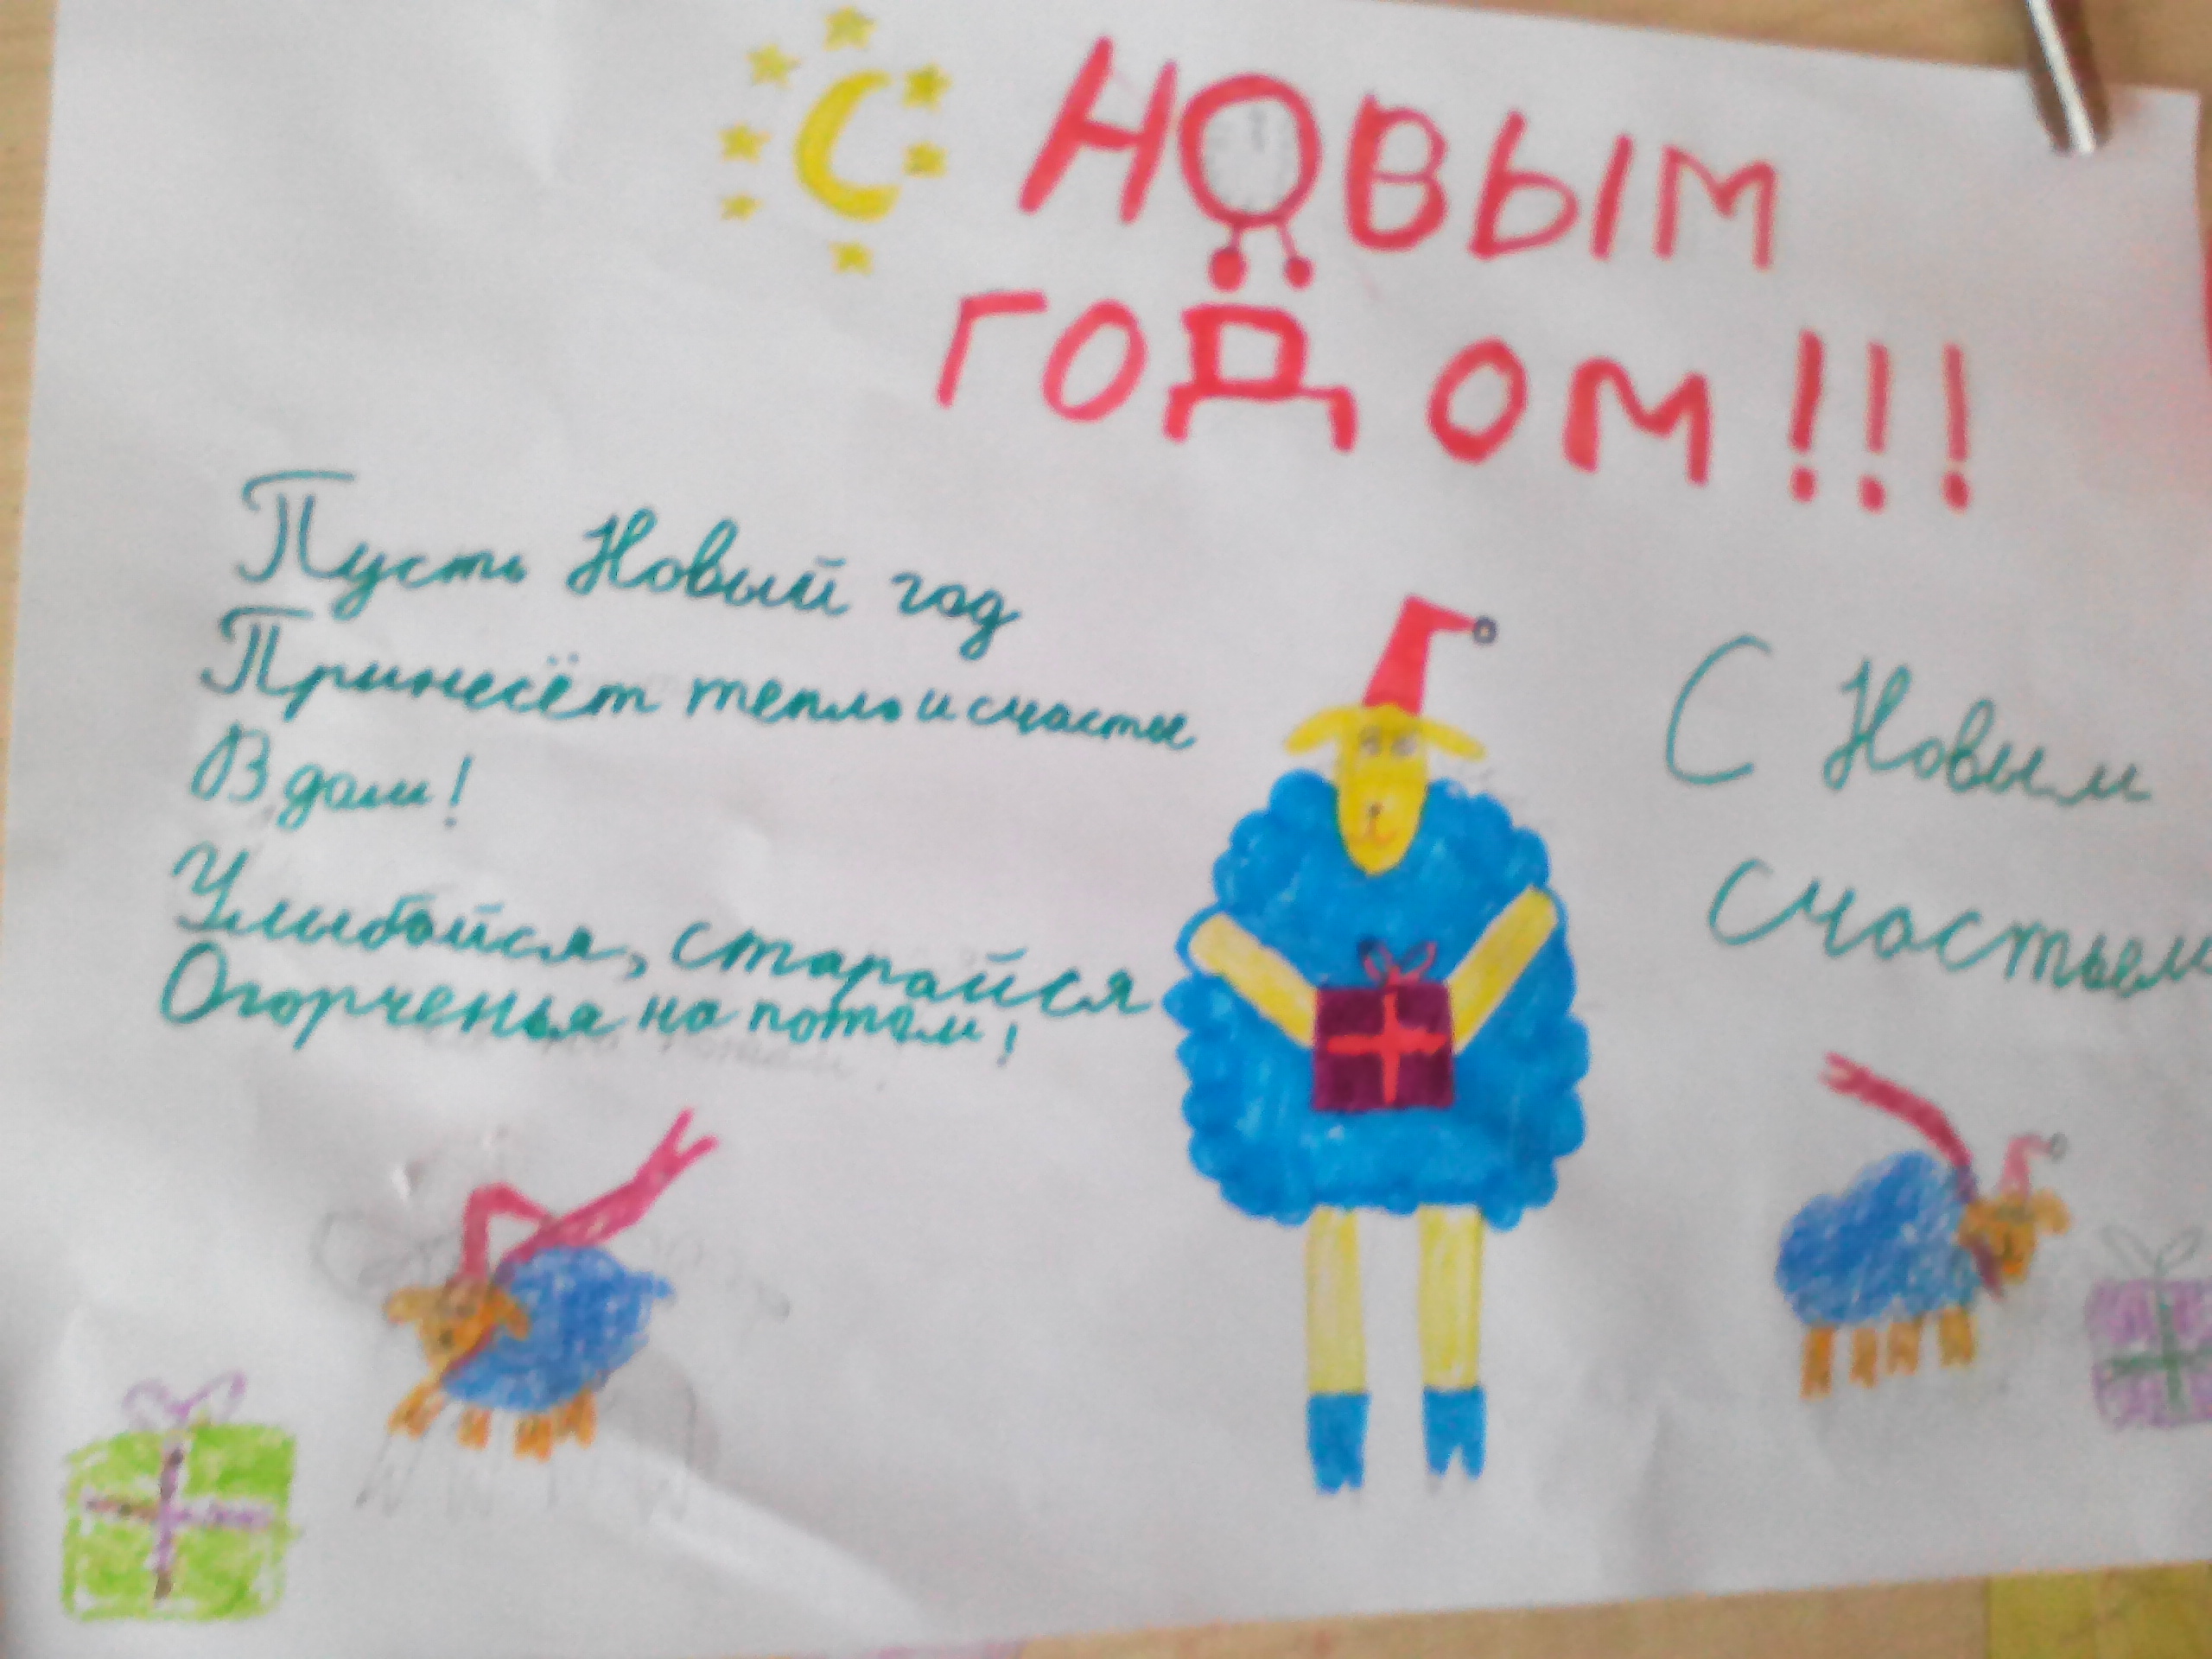 С НОВЫМ
ГОДОМ!!!
Пусть Новый год
Принесёт тепло и счастье
В дом!
Улыбайся, старайся
Огорченья на потом!
С Новым
счастьем